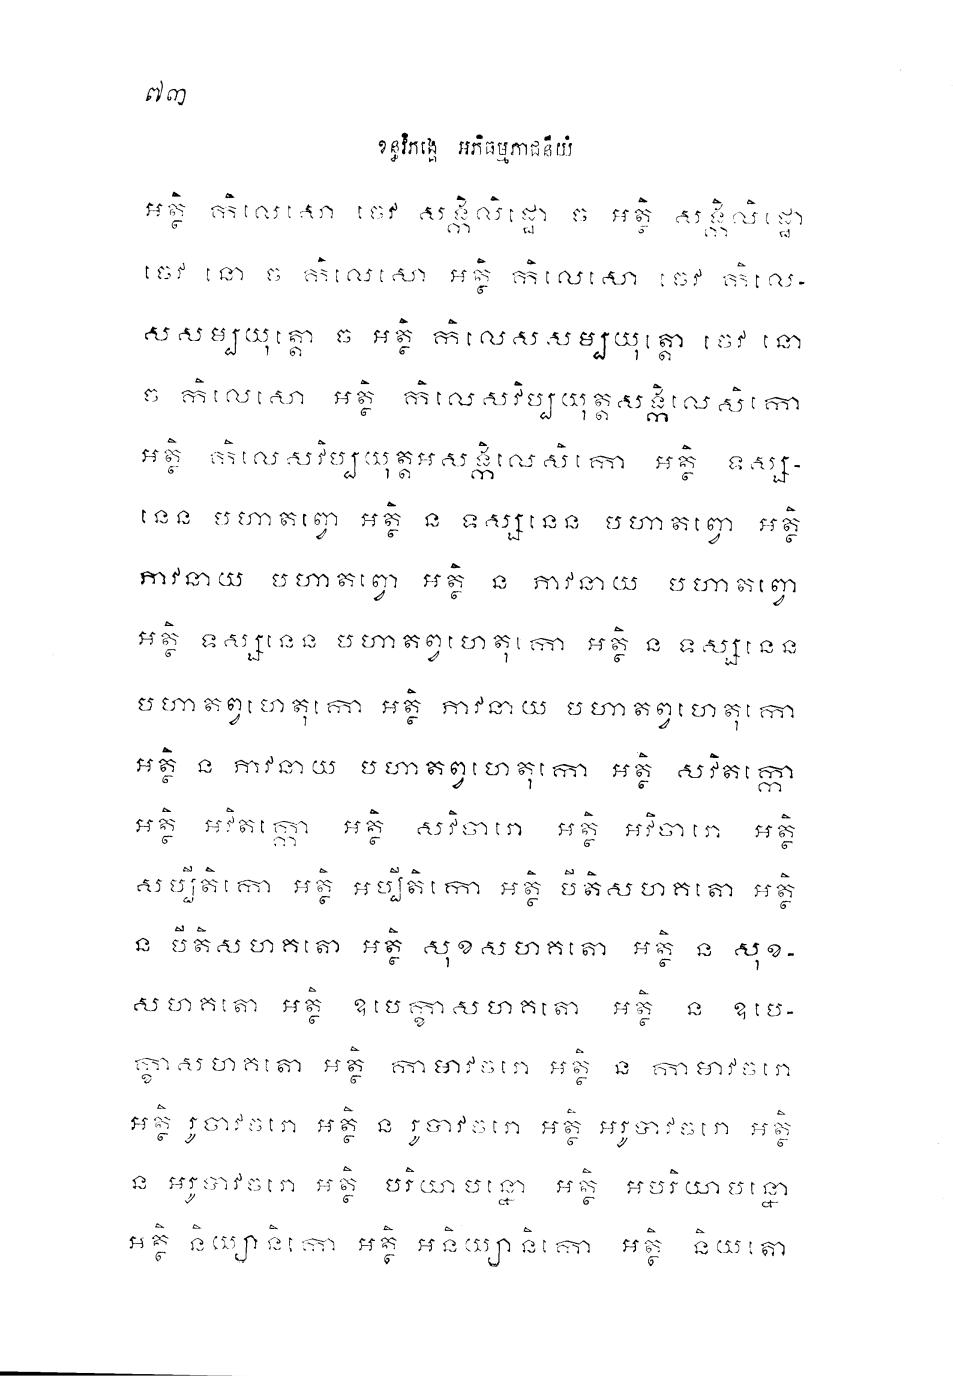 ៧៣
ខន្ធវិភង្គេ អភិធម្មភាជនីយំ
អត្ថិ កិលេសោ ចេវ សង្កិលិដ្ឋោ ច អត្ថិ សង្កិលិដ្ឋោ
ចេវ នោ ច កិលេសោ អត្ថិ កិលេសោ ចេវ កិលេ-
សសម្បយុត្តោ ច អត្ថិ កិលេសសម្បយុត្តោ ចេវ នោ
ច កិលេសោ អត្ថិ កិលេសវិប្បយុត្តសង្កិលេសិកោ
អត្ថិ កិលេសវិប្បយុត្តអសង្កិលេសិកោ អត្ថិ ទស្ស-
នេន បហាតព្វោ អត្ថិ ន ទស្សនេន បហាតព្វោ អត្ថិ
ភាវនាយ បហាតព្វោ អត្ថិ ន ភាវនាយ បហាតព្វោ
អត្ថិ ទស្សនេន បហាតព្វហេតុកោ អត្ថិ ន ទស្សនេន
បហាតព្វហេតុកោ អត្ថិ ភាវនាយ បហាតព្វហេតុកោ
អត្ថិ ន ភាវនាយ បហាតព្វហេតុកោ អត្ថិ សវិតក្កោ
អត្ថិ អវិតក្កោ អត្ថិ សវិចារោ អត្ថិ អវិចារោ អត្ថិ
សប្បីតិកោ អត្ថិ អប្បីតិកោ អត្ថិ បីតិសហគតោ អត្ថិ
ន បីតិសហគតោ អត្ថិ សុខសហគតោ អត្ថិ ន សុខ-
សហគតោ អត្ថិ ឧបេក្ខាសហគតោ អត្ថិ ន ឧបេ-
ក្ខាសហគតោ អត្ថិ កាមាវចរោ អត្ថិ ន កាមាវចរោ
អត្ថិ រូបាវចរោ អត្ថិ ន រូបាវចរោ អត្ថិ អរូបាវចរោ អត្ថិ
ន អរូបាវចរោ អត្ថិ បរិយាបន្នោ អត្ថិ អបរិយាបន្នោ
អត្ថិ និយ្យានិកោ អត្ថិ អនិយ្យានិកោ អត្ថិ និយតោ